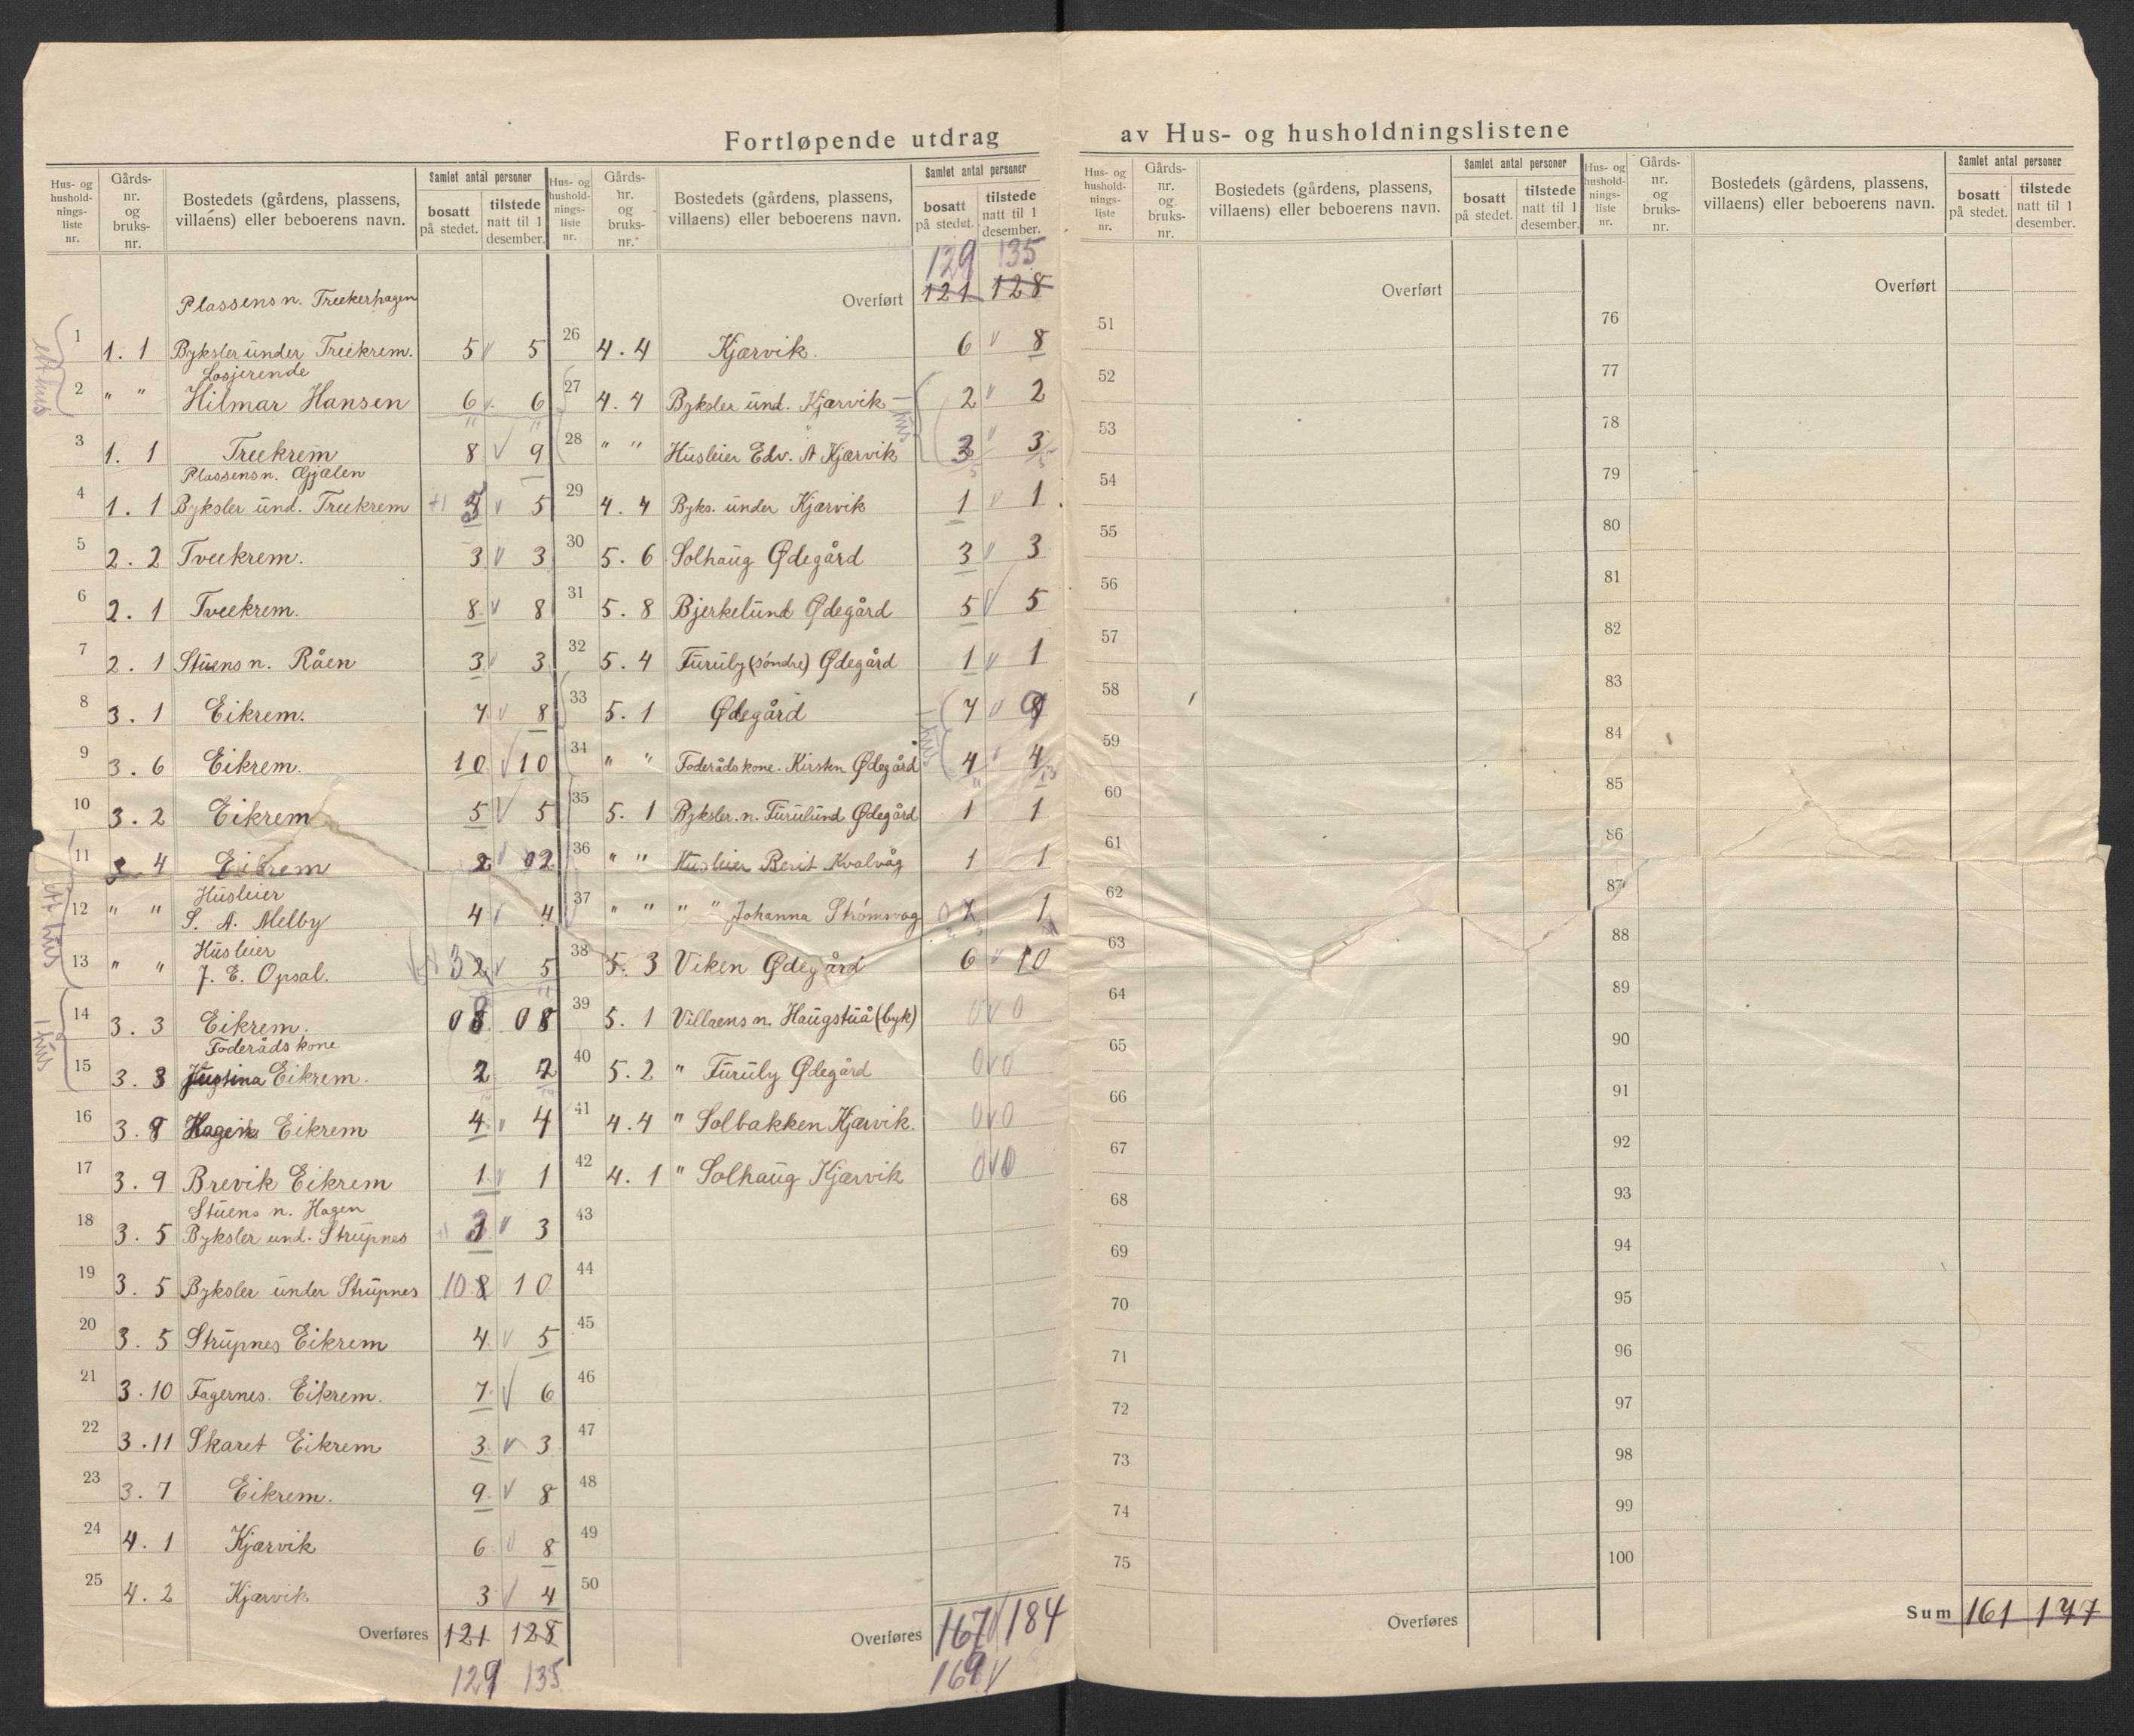 Fortløpende utdrag av Hus- og husholdningslistene
Hus- og husholdnings- liste nr.
Gårds- nr. og bruks- nr.
Bostedets (gårdens, plassens, villaens) eller beboerens navn.
Samlet antal personer
bosatt på stedet.
tilstede natt til 1 desember.
Plassens n. Treekerhagen
1 1. 1 Byksler under Treekrem. 5 v 5
Losjerende
2 " " Hilmar Hansen 6 v 6
ett hus
3 1. 1 Treekrem 8 v 9
Plassens n. Gjølen
4 1. 1 Byksler und. Treekrem +1 5 v 5
5 2. 2 Tveekrem. 3 v 3
6 2. 1 Tveekrem. 8 v 8
7 2. 1 Stuens n. Råen 3 v 3
8 3. 1 Eikrem. 7 v 8
9 3. 6 Eikrem. 10 v 10
10 3. 2 Eikrem 5 v 5
11 3. 4 Eikrem 2 v 02
Husleier
12 " " S. A. Melby 4 v 4
Husleier
13 " " J. E. Opsal. 3 2 v 5
ett hus
14 3. 3 Eikrem. 08 08
Foderåds kone
15 3. 3 Justina Eikrem. 2 2
1 hus
16 3. 8 Hagen Eikrem 4 v 4
17 3. 9 Brevik Eikrem 1 v 1
Stuens n. Hagen
18 3. 5 Byksler und. Strupnes 3 v 3
19 3. 5 Byksler under Strupnes 10 8 10
20 3. 5 Strupnes Eikrem 4 v 5
21 3. 10 Fagernes. Eikrem. 7 v 6
22 3. 11 Skaret Eikrem 3 v 3
23 3. 7 Eikrem. 9 v 8
24 4. 1 Kjærvik 6 v 8
25 4. 2 Kjærvik 3 v 4
Overføres 121 128
129 135
Hus- og husholdnings- liste nr.
Gårds- nr. og bruks- nr.
Bostedets (gårdens, plassens, villaens) eller beboerens navn.
Samlet antal personer
bosatt på stedet.
tilstede natt til 1 desember.
129 135
Overført 121 128
26 4. 4 Kjærvik. 6 v 8
27 4. 4 Byksler und. Kjærvik 2 v 2
28 " " Husleier Edv. A Kjærvik 3 v 3
1 hus
29 4. 4 Byks. under Kjærvik 1 v 1
30 5. 6 Solhaug Ødegård 3 v 3
31 5. 8 Bjerkelund Ødegård 5 v 5
32 5. 4 Furuly (söndre) Ødegård 1 v 1
33 5. 1 Ødegård 7 v 9
34 " " Foderåds kone. Kirsten Ødegård 4 v 4
1 hus
35 5. 1 Byksler. n. Furulund Ødegård 1 1
36 " " Husleier Berit Kvalvåg 1 1
37 " " " " Johanna Strömsvag 0 1 1
38 5. 3 Viken Ødegård 6 v 10
39 5. 1 Villaens n. Haugstuå (byk) 0 v 0
40 5. 2 " Furuly Ødegård 0 v 0
41 4. 4 " Solbakken Kjærvik. 0 v 0
42 4. 1 " Solhaug Kjærvik 0 v 0
43
44
45
46
47
48
49
50
Overføres 167 v 184
169 v
Hus- og hushold- nings- liste nr.
Gårds- nr. og bruks- nr.
Bostedets (gårdens, plassens, villaens) eller beboerens navn.
Samlet antal personer
bosatt på stedet.
tilstede natt til 1 desember.
Overført
51
52
53
54
55
56
57
58
59
60
61
62
63
64
65
66
67
68
69
70
71
72
73
74
75
Overføres
Hus- og hushold- nings- liste nr.
Gårds- nr. og bruks- nr.
Bostedets (gårdens, plassens, villaens) eller beboerens navn.
Samlet antal personer
bosatt på stedet.
tilstede natt til 1 desember.
Overført
76
77
78
79
80
81
82
83
84
85
86
87
88
89
90
91
92
93
94
95
96
97
98
99
100
Sum 161 177